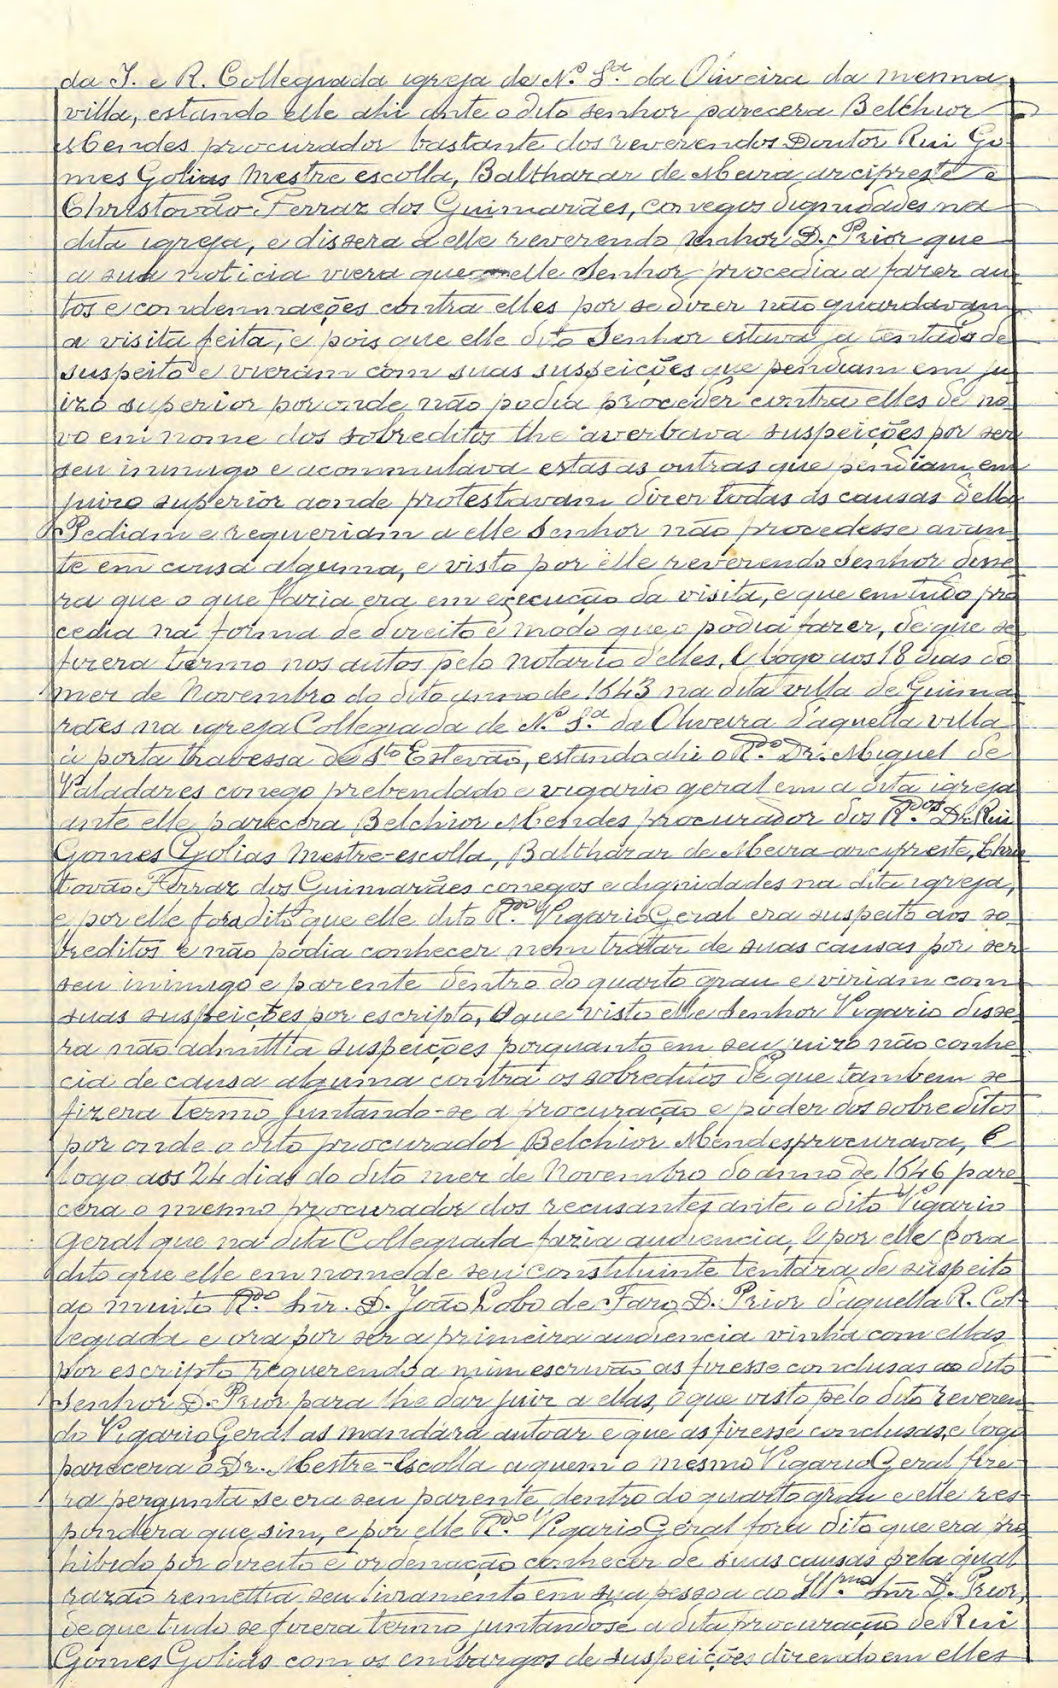 da I. e R. Collegiada igreja de N.ª S.ª da Oliveira da mesma
villa, estando elle ahi ante o dito senhor parecera Belchior
Mendes procurador bastante dos reverendos Doutor Rui Go-
mes Golias Mestre escolla, Balthazar de Meira arcipreste e
Christovão Ferraz dos Guimarães, conegos dignidades na
dita igreja, e dissera a elle reverendo senhor D. Prior que
a sua noticia viera que elle Senhor procedia a fazer au-
tos e condemnações contra elles por se dizer não guardavam
a visita feita, e pois que elle dito Senhor estava ja tentado de
suspeito e vieram com suas suspeições que pendiam em ju-
izo superior por onde não podia proceder contra elles de no-
vo em nome dos sobreditos lhe averbava suspeições por ser
seu inimigo e acommulava estas as outras que pendiam em
juizo superior aonde protestavam dizer todas as causas della
Pediam e requeriam a elle Senhor não procedesse avan-
te em cousa alguma, e visto por elle reverendo Senhor disse-
ra que o que faria era em execução da visita, e que em tudo pro-
cedia na forma de direito e modo que o podia fazer, de que se
fizera termo nos autos pelo notario d'elles. E logo aos 18 dias do
mez de Novembro do dito anno de 1643 na dita villa de Guima-
rães na igreja Collegiada de N.ª S.ª da Oliveira d'aquella villa
á porta travessa de S.to Estevão, estando ahi o R.do Dr. Miguel de
Valadares conego prebendado e vigario geral em a dita igreja
ante elle parecera Belchior Mendes procurador dos R.dos Dr. Rui
Gomes Golias Mestre-escolla, Balthazar de Meira arcipreste, Chris-
tovão Ferraz dos Guimarães conegos e dignidades na dita igreja,
e por elle fora dito que elle dito R.do Vigario Geral era suspeito aos so-
breditos e não podia conhecer nem tratar de suas causas por ser
seu inimigo e parente dentro do quarto grau e viriam com
suas suspeições por escripto, o que visto elle Senhor Vigario disse-
ra não admittia suspeições porquanto em seu juizo não conhe-
cia de causa alguma contra os sobreditos de que tambem se
fizera termo juntando-se a procuração e poder dos sobreditos
por onde o dito procurador Belchior Mendes procurava, E
logo aos 24 dias do dito mez de Novembro do anno de 1646 pare-
cera o mesmo procurador dos recusantes ante o dito Vigario
Geral que na dita Collegiada fazia audiencia, e por elle fora
dito que elle em nome de seu constituinte tentara de suspeito
ao muito R.do Snr. D. João Lobo de Faro D. Prior d'aquella R. Col-
legiada e ora por ser a primeira audiencia vinha com ellas
por escripto requerendo a mim escrivão as fizesse conclusas ao dito
Senhor D. Prior para lhe dar juiz a ellas, o que visto pelo dito reveren-
do Vigario Geral as mandára autoar e que as fizesse conclusas, e logo
parecera o Dr. Mestre-Escolla a quem o mesmo Vigario Geral fize-
ra pergunta se era seu parente, dentro do quarto grau e elle res-
pondera que sim, e por elle R.do Vigario Geral fora dito que era pro-
hibido por direito e ordenação conhecer de suas causas pela qual
razão remettia seu livramento em sua pessoa ao Ill.mo Snr D. Prior,
de que tudo se fizera termo juntando se a dita procuração de Rui
Gomes Golias com os embargos de suspeições dizendo em elles